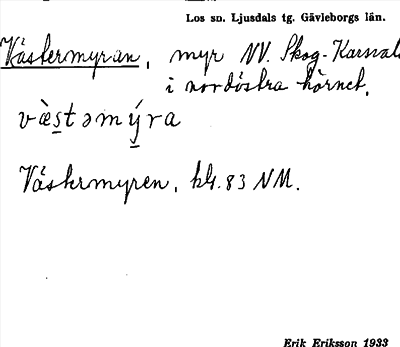 Los sn. Ljusdals tg. Gävleborgs län.
Västermyran, myr NV. Skog-Karsval
i nordöstra hörnet.
vὲstəmýra
Västermyren, bl. 83 NM.
Erik Eriksson 1933